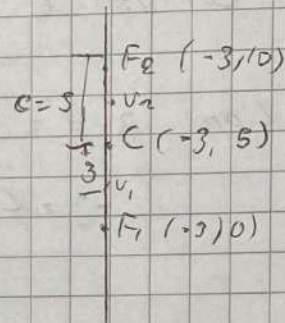 F2 (-3,10)
c = 5
V2
C (-3, 5)
3
V1
F1 (-3,0)